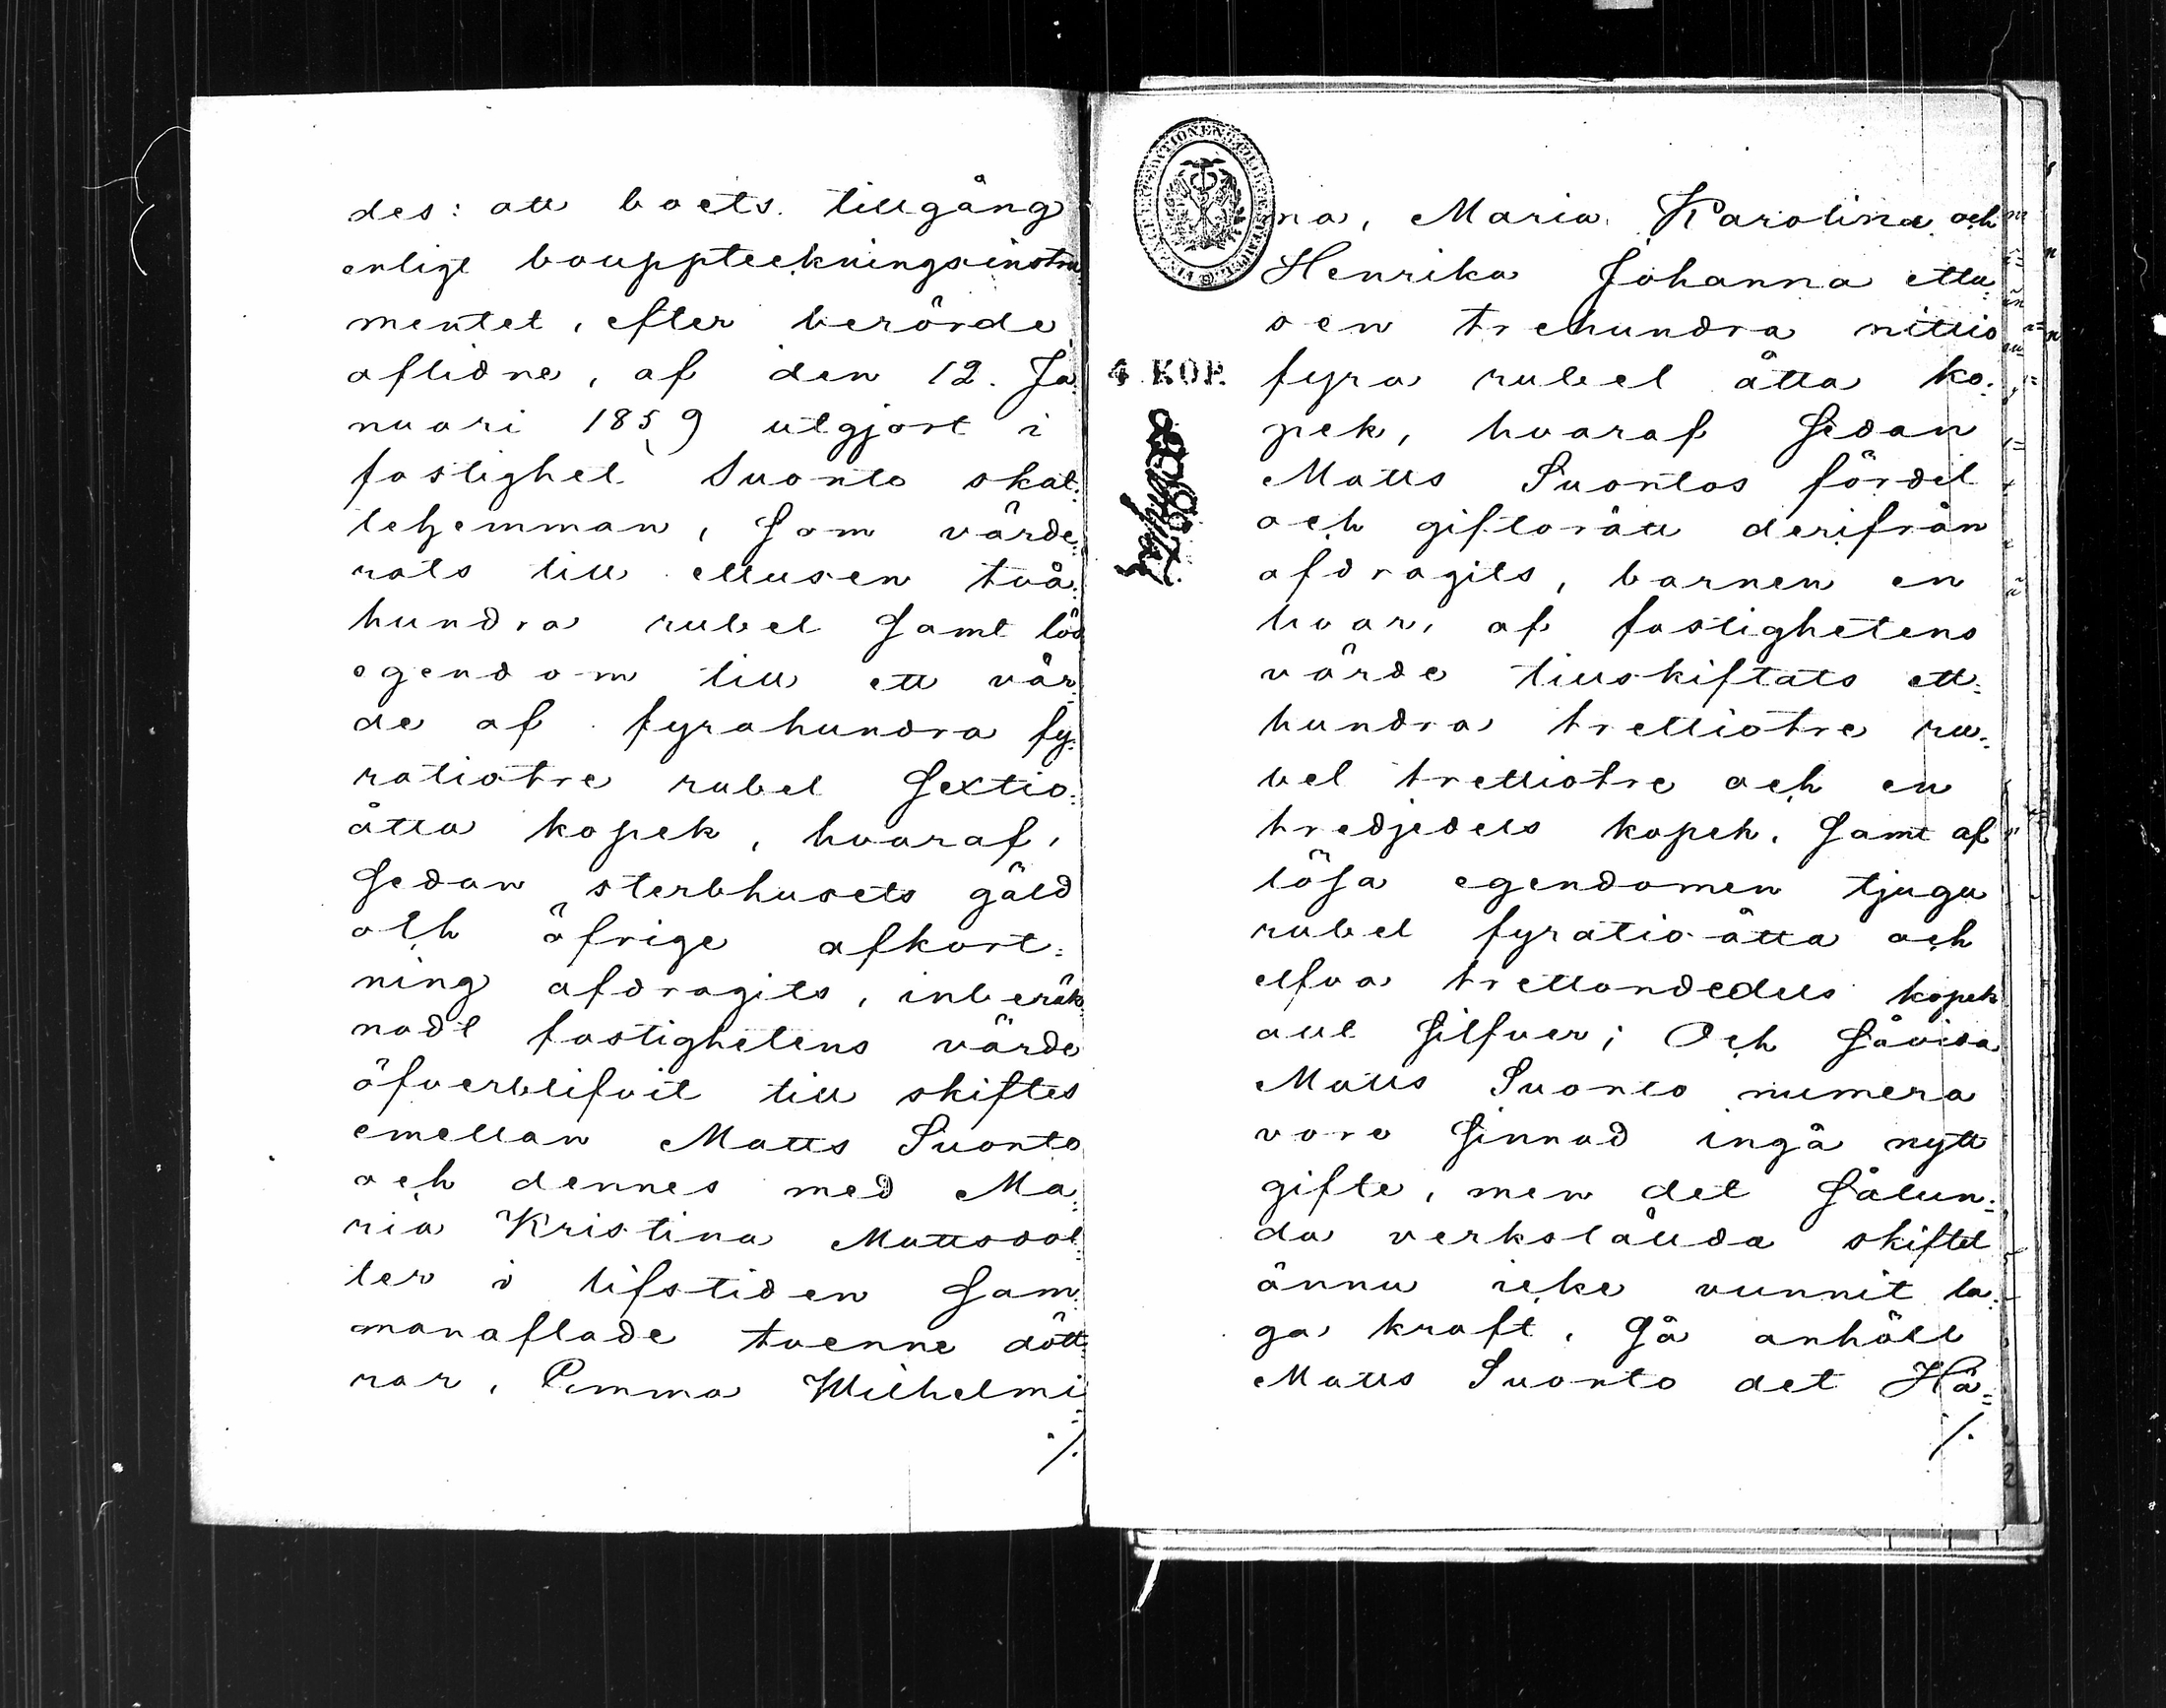 des: att boets tillgång
enligt bouppteckningsinstru=
mentet, efter berörde
aflidne, af den 12. Ja=
nuari 1859 utgjort i
fastighet Suonto skat=
tehemman, som värde=
rats till ettusen två=
hundra rubel samt lös
egendom till ett vär=
de af fyrahundra fy=
ratiotre rubel sextio=
åtta kopek, hvaraf,
sedan sterbhusets gäld
och öfrige afkort=
ning afdragits, inberäk=
nadt fastighetens värde
öfverblifvit till skiftes
emellan Matts Suonto
och dennes med Ma=
ria Kristina Mattsdot=
ter i lifstiden sam=
manaflade tvenne dött=
rar, Emma Wilhelmi=
./.
4 KOP.
na, Maria Karolina och
Henrika Johanna ettu=
sen trehundra nittio
fyra rubel åtta ko=
pek, hvaraf sedan
Matts Suontos fördel
och giftorätt derifrån
afdragits, barnen en
hvar, af fastighetens
värde tillskiftats ett=
hundra trettiotre ru=
bel trettiotre och en
tredjedels kopek, samt af
lösa egendomen tjugu
rubel fyratio åtta och
elfva trettondedels kopek
allt silfver; Och såvida
Matts Suonto numera
vore sinnad ingå nytt
gifte, men det sålun=
da verkstälda skiftet
ännu icke vunnit la=
ga kraft, så anhöll
Matts Suonto det Hä=
./.